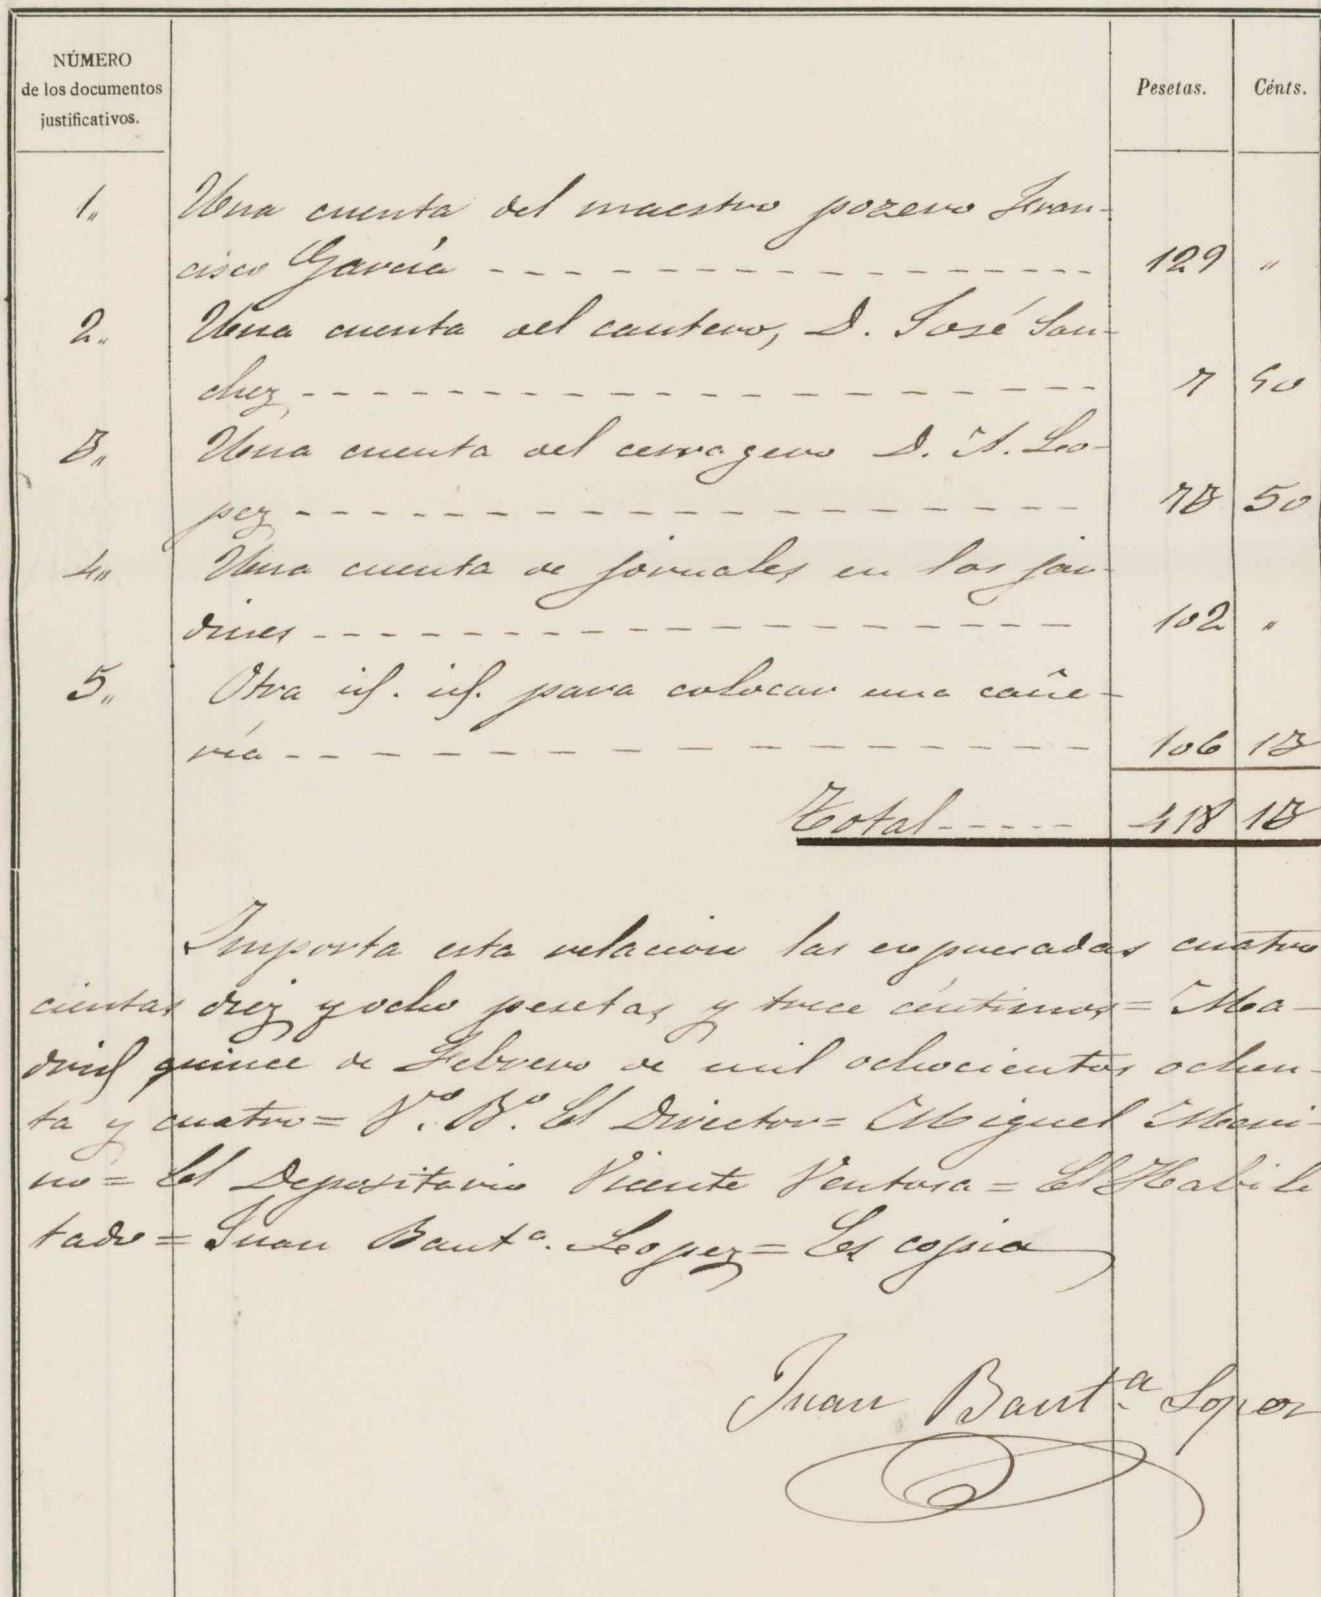 NÚMERO
de los documentos
justificativos.
Pesetas.
Cénts.
1„ Una cuenta del maestro pozero Fran-
cisco García - - - - - - - - - - - - - - - - 129 „
2„ Una cuenta del cantero, D. José San-
chez - - - - - - - - - - - - - - - - - - 7 50
3„ Una cuenta del cerragero D. A. Lo-
pez - - - - - - - - - - - - - - - - - - 73 50
4„ Una cuenta de jornales en los jar-
dines - - - - - - - - - - - - - - - - - - 102 „
5„ Otra id. id. para colocar una cañe-
ría - - - - - - - - - - - - - - - - - - 106 13
Total - - - - - 418 13
Importa esta relacion las expresadas cuatro
cientas diez y ocho pesetas y trece céntimos = Ma-
drid quince de Febrero de mil ochocientos ochen-
ta y cuatro = Vº. Bº. El Director = Miguel Meri-
no = El Depositario Vicente Ventosa = El Habili
tado = Juan Bautª. Lopez = Es copia
Juan Bautª Lopez